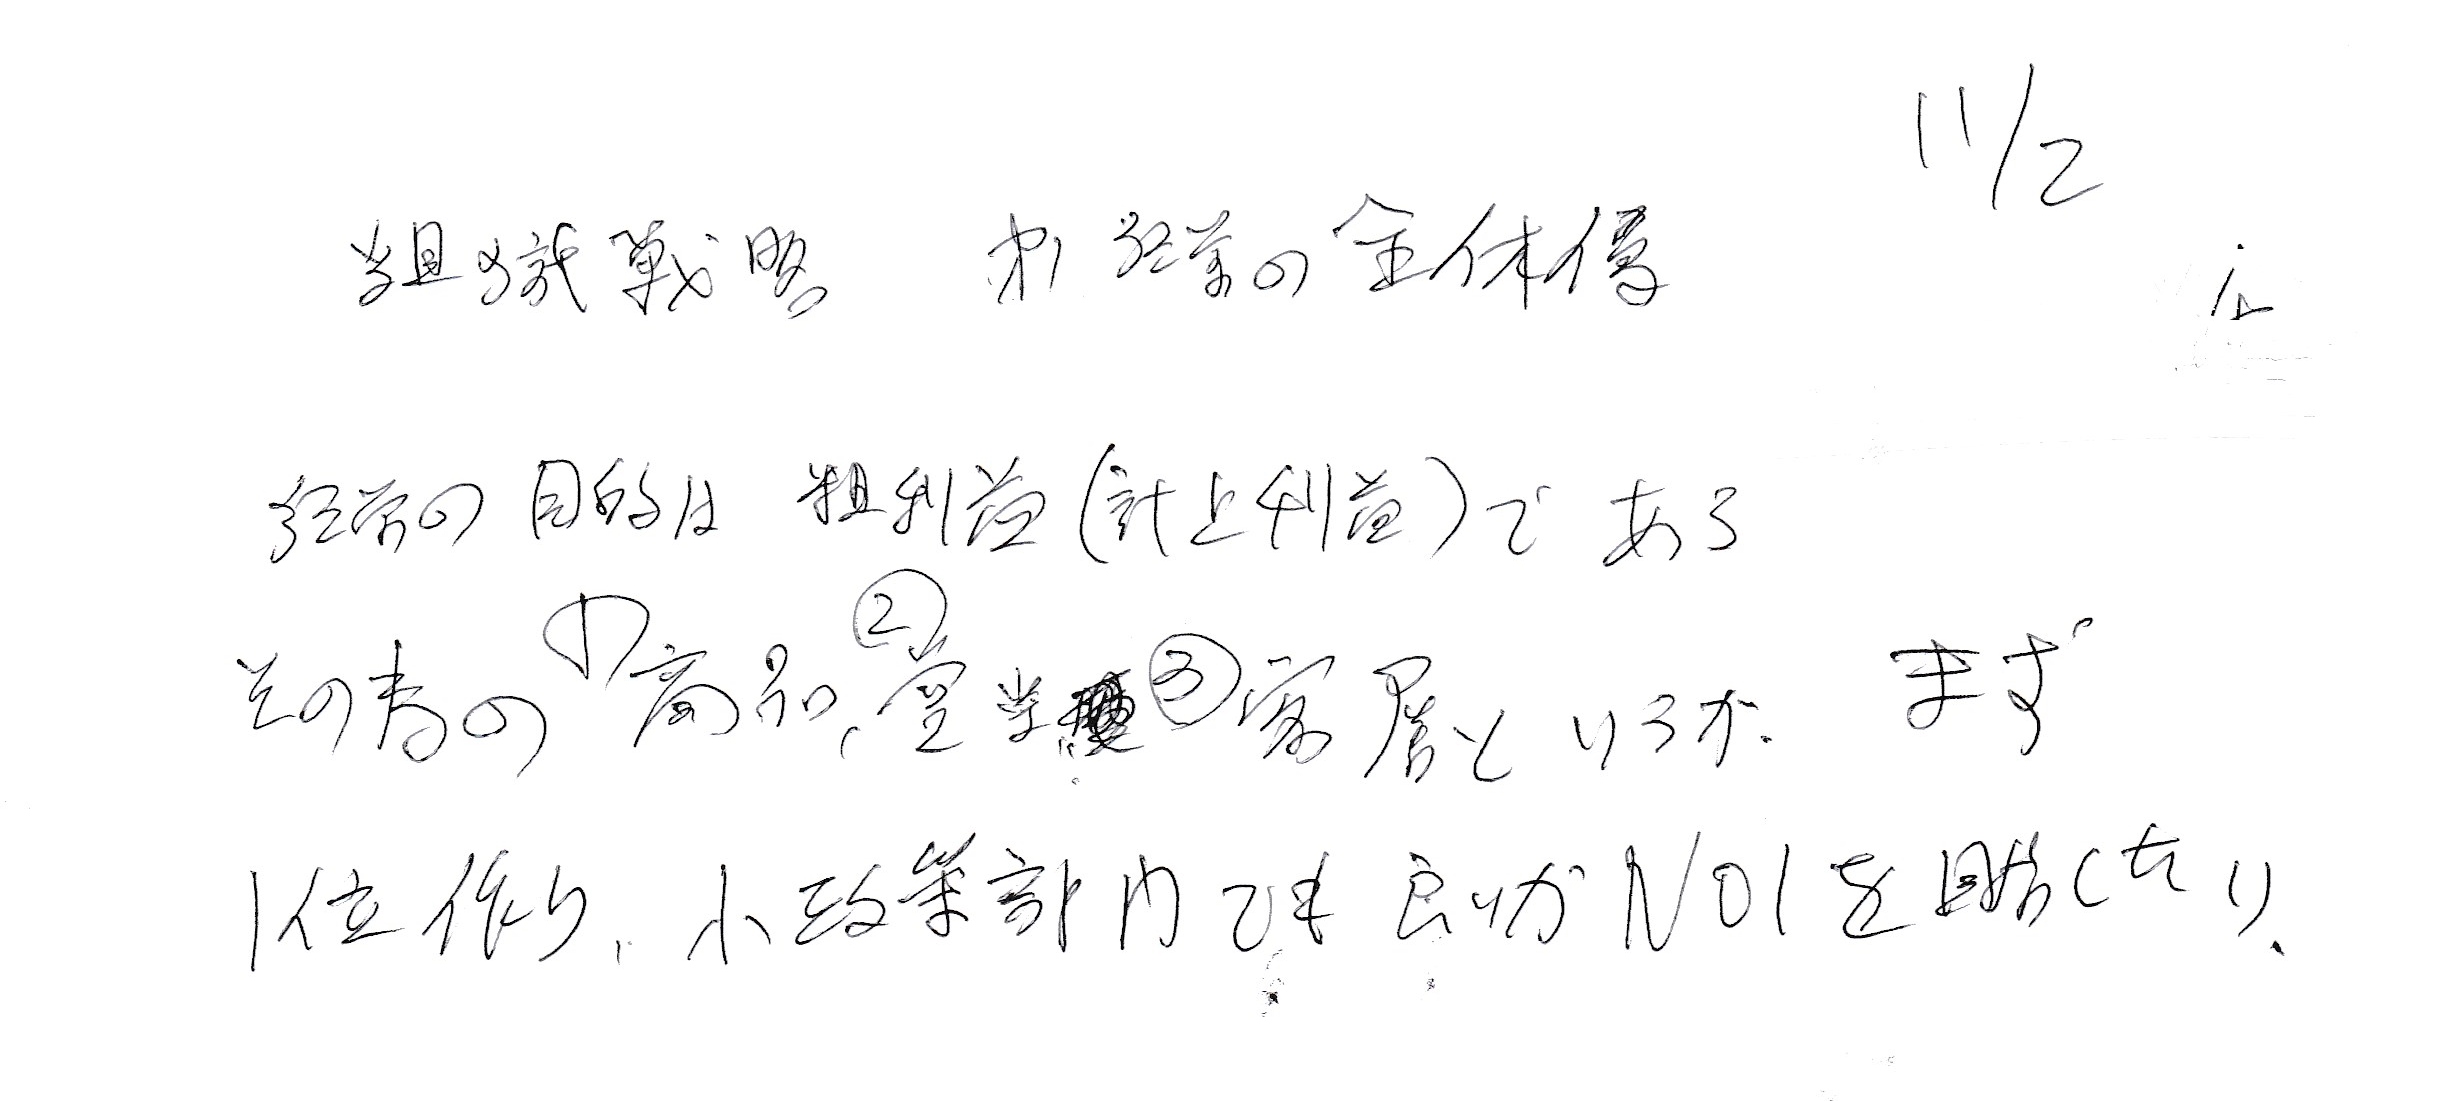 11/2
組織戦略 オ1 経営の全体像
経営の目的は 粗利益(計上利益)で ある
その為の ①商品、②営業 ③客層というが. まず
1位作り、小政策部門でも 良いが NO1を目指したい、